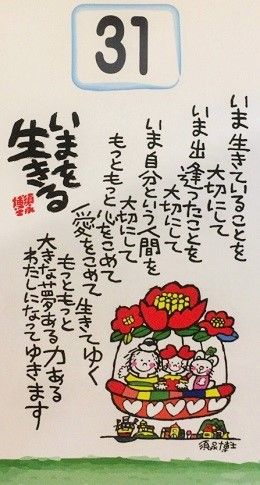 31
いまを
生きる
いま生きていることを
大切にして
いま出逢ったことを
大切にして
いま自分という人間を
大切にして
もっともっと心をこめて
愛をこめて生きてゆく
もっともっと
大きな夢ある力ある
わたしになってゆきます